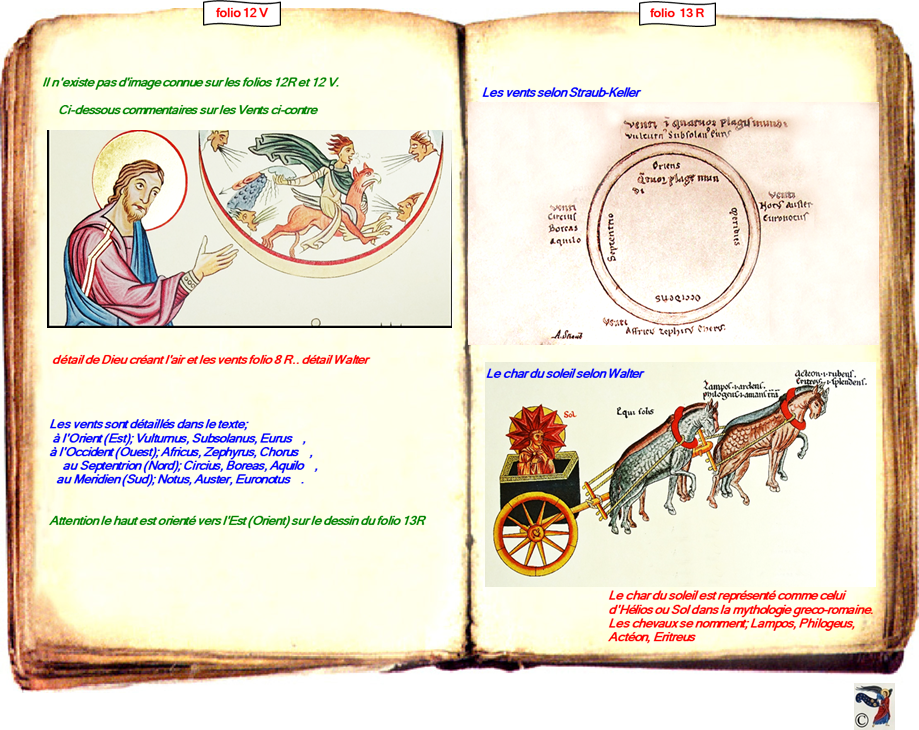 folio 12 V
Il n'existe pas d'image connue sur les folios 12R et 12 V.
Ci-dessous commentaires sur les Vents ci-contre
détail de Dieu créant l'air et les vents folio 8 R.. détail Walter
Les vents sont détaillés dans le texte;
à l'Orient (Est); Vulturnus, Subsolanus, Eurus ,
à l'Occident (Ouest); Africus, Zephyrus, Chorus ,
au Septentrion (Nord); Circius, Boreas, Aquilo ,
au Meridien (Sud); Notus, Auster, Euronotus .
Attention le haut est orienté vers l'Est (Orient) sur le dessin du folio 13R
folio 13 R
Les vents selon Straub-Keller
Venti i quatuor plagis mundi
Oriens
Venti
Circius
Boreas
Aquilo
Septentrio
Venti
Euronotus
Meridies
Occidens
Venti
Affricus Zephirus
Le char du soleil selon Walter
Acteon .i. rubens.
Lampos .i. ardens.
Equi solis
Sol
Le char du soleil est représenté comme celui
d'Hélios ou Sol dans la mythologie greco-romaine.
Les chevaux se nomment; Lampos, Philogeus,
Actéon, Eritreus
©